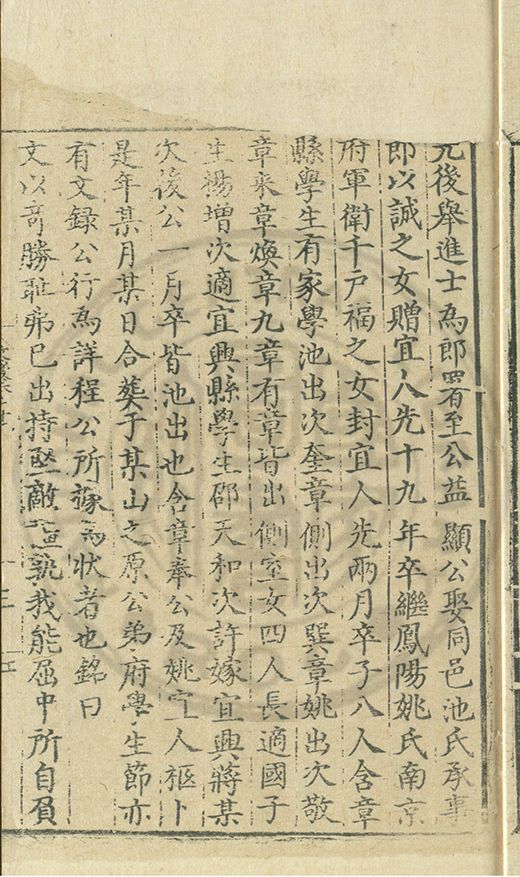 元後舉進士為郎署至公益顯公娶同邑池氏承事
郎以誠之女贈宜人先十九年卒繼鳳陽姚氏南京
府軍衛千戶福之女封宜人先兩月卒子八人含章
縣學生有家學池出次奎章側出次巽章姚出次敬
章來章煥章九章有章皆出側室女四人長適國子
生楊增次適宜興縣學生邵天和次許嫁宜興蔣某
次後公一月卒皆池出也含章奉公及姚宜人柩卜
是年某月某日合葬于某山之原公弟府學生節亦
有文錄公行為詳程公所據為狀者也銘曰
文以奇勝耻弗已出持堅敵 孰我能屈中所自負